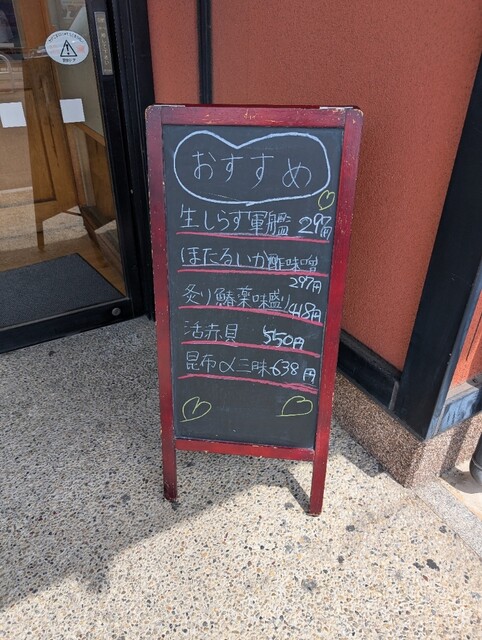 おすすめ
生しらす軍艦 297円
ほたるいか酢味噌
297円
炙り鰆薬味盛り 418円
活赤貝 550円
昆布〆三昧 638円